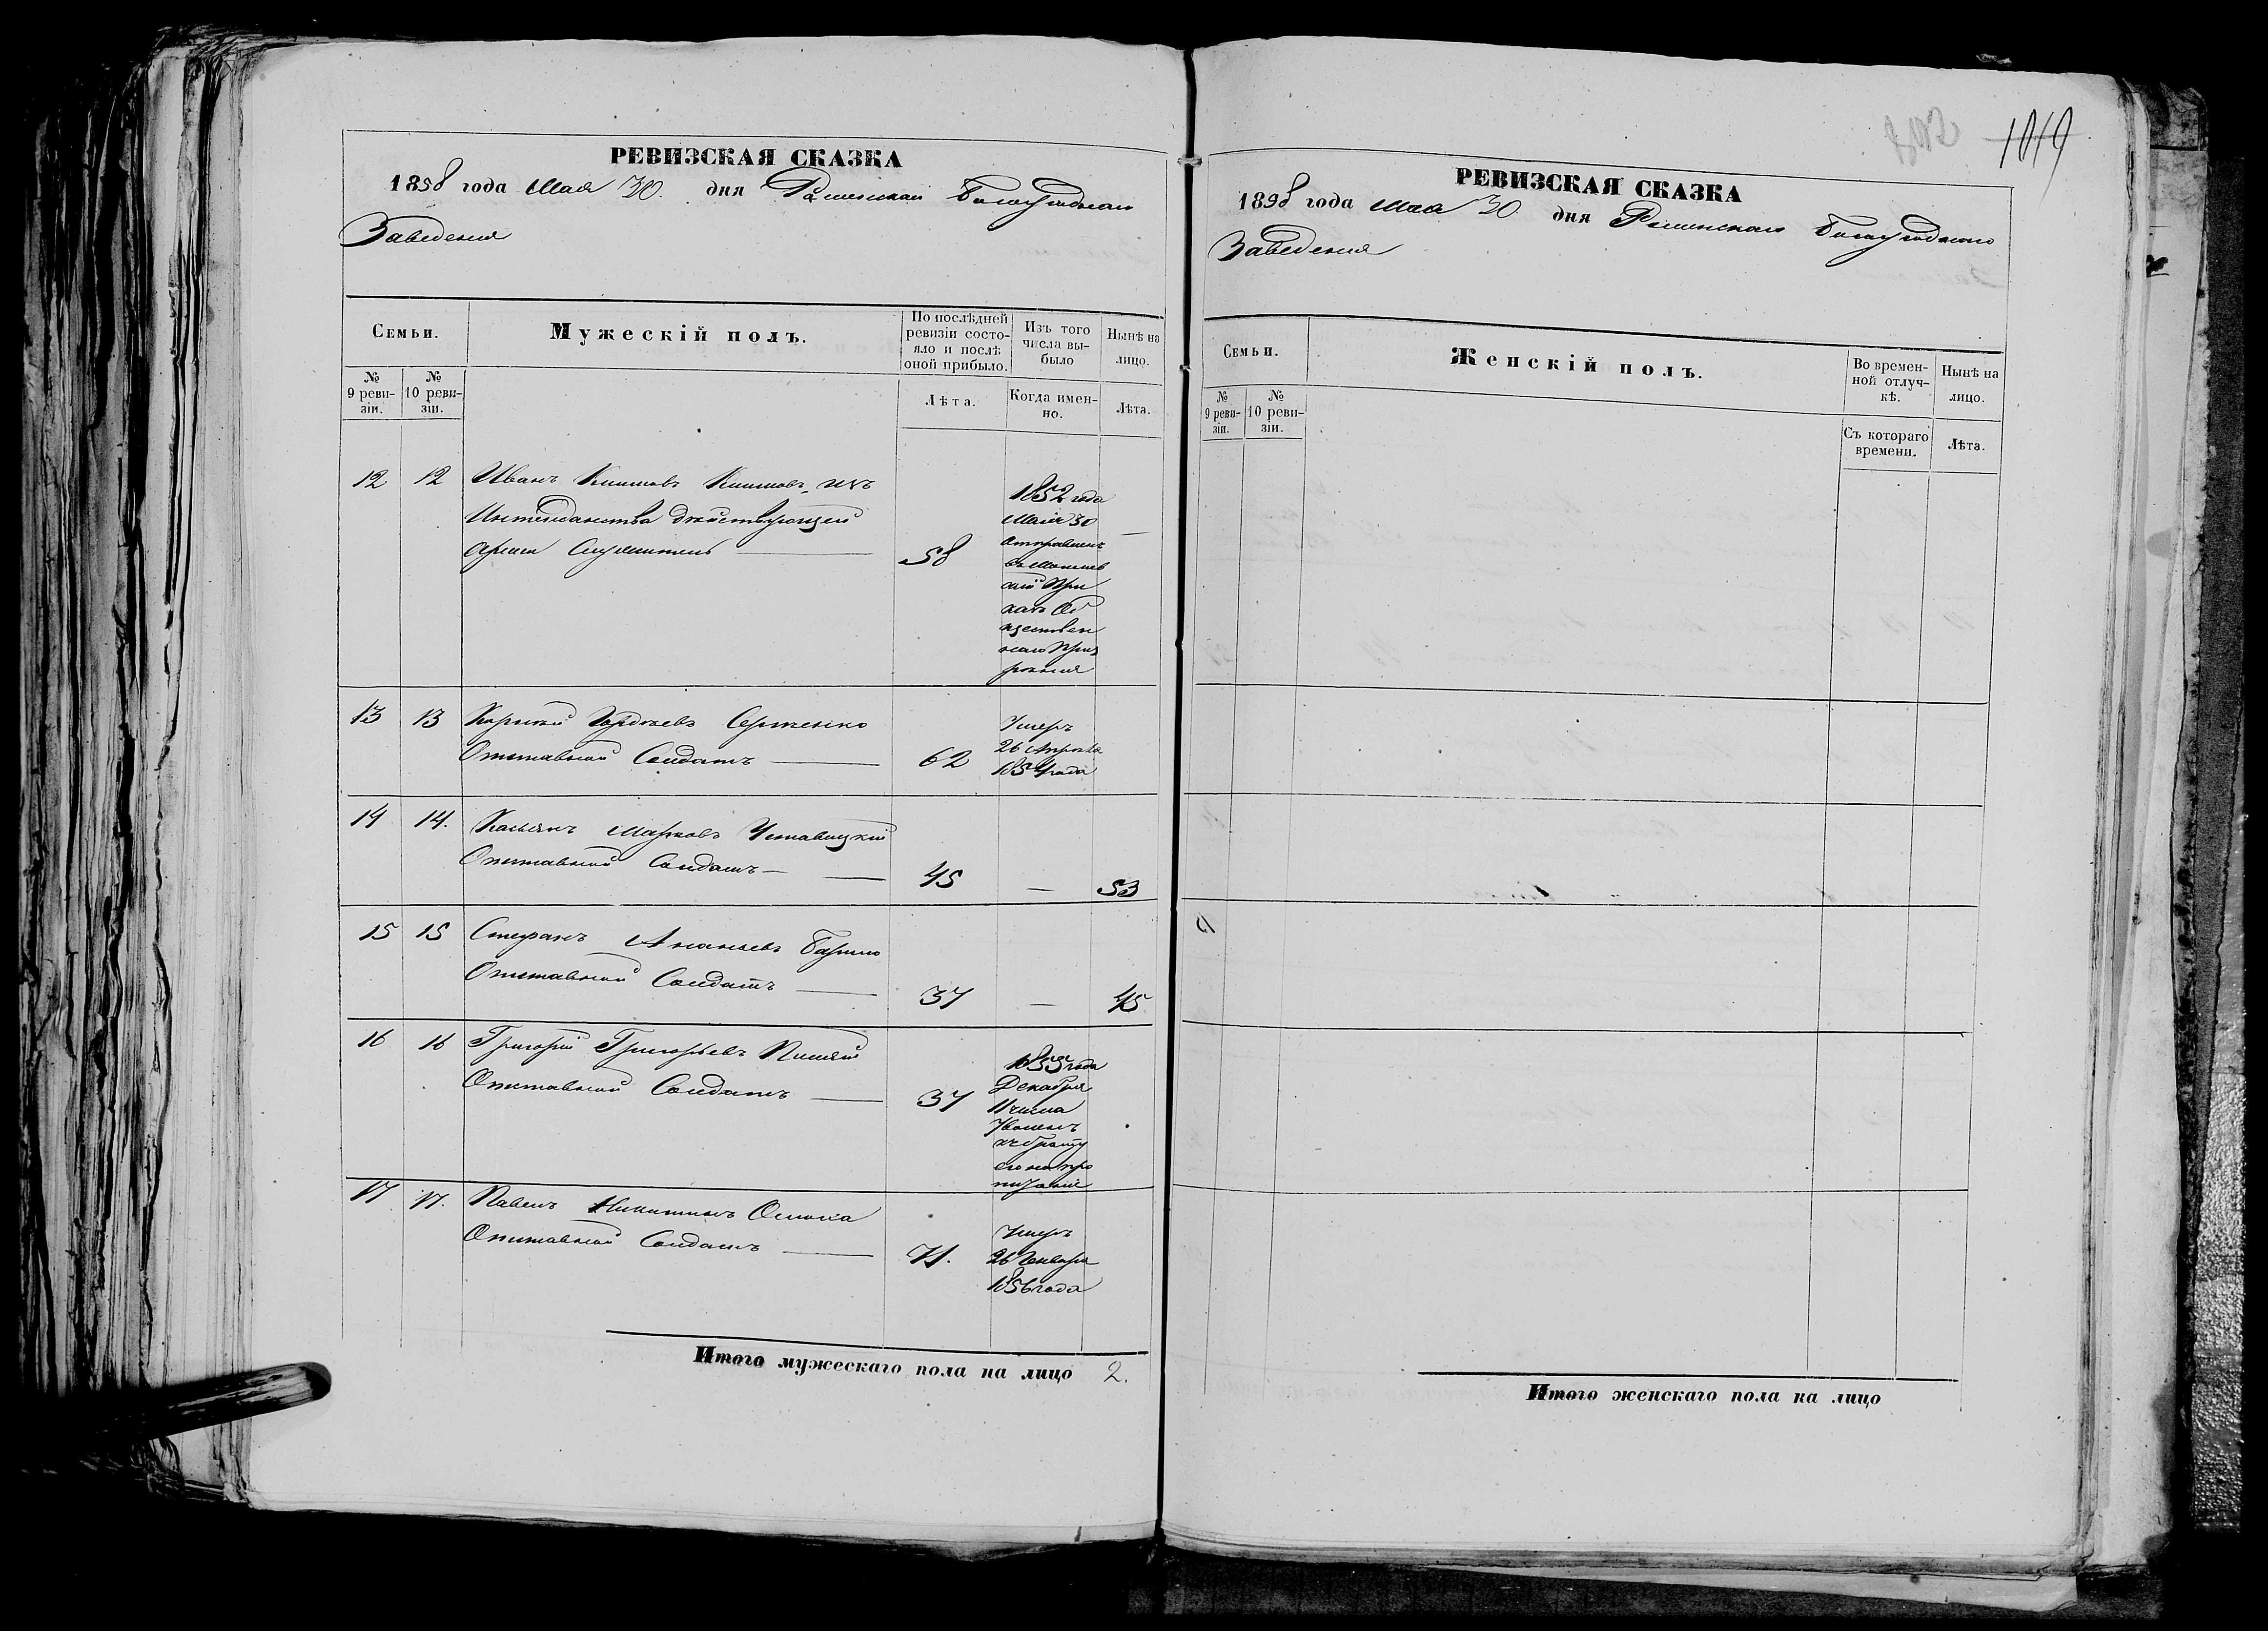 1019
РЕВИЗСКАЯ СКАЗКА
1858 года Мая 30 дня Роменскаго Богоугоднаго
Заведения
Семьи.
Мужескій полъ.
По послѣдней ревизіи состояло и послѣ оной прибыло.
Изъ того числа выбыло
Нынѣ на лицо.
№ 9 ревизіи.
№ 10 ревизіи.
Лѣта.
Когда именно.
Лѣта.
12 12 Иванъ изъ
Интендантства действующей
Армии Служитель 58
1852 года
Маия 30
Отправленъ
въ
Приказъ Об
щественнаго Приз
рѣния
13 13 Сергиенко
Отставной Солдатъ 62
Умеръ
26 Апреля
1854 года
14 14. Касьянъ Марковъ Уставицкій
Отставной Солдатъ 45 — 53
15 15 Стефанъ Ананьевъ
Отставной Солдатъ 37 — 45
16 16 Григорій Григорьевъ
Отставной Солдатъ 37
1855 года
Декабря
11 числа
Уволенъ
къ брату
его на про
питаніе
17 17. Павелъ Никитинъ
Отставной Солдатъ 71.
Умеръ
26 Генваря
1856 года
Итого мужескаго пола на лицо 2.
РЕВИЗСКАЯ СКАЗКА
1858 года Мая 30 дня Роменскаго Богоугоднаго
Заведения
Семьи.
Женскій полъ.
Во временной отлучкѣ.
Нынѣ на лицо.
№ 9 ревизіи.
№ 10 ревизіи.
Съ котораго времени.
Лѣта.
Итого женскаго пола на лицо